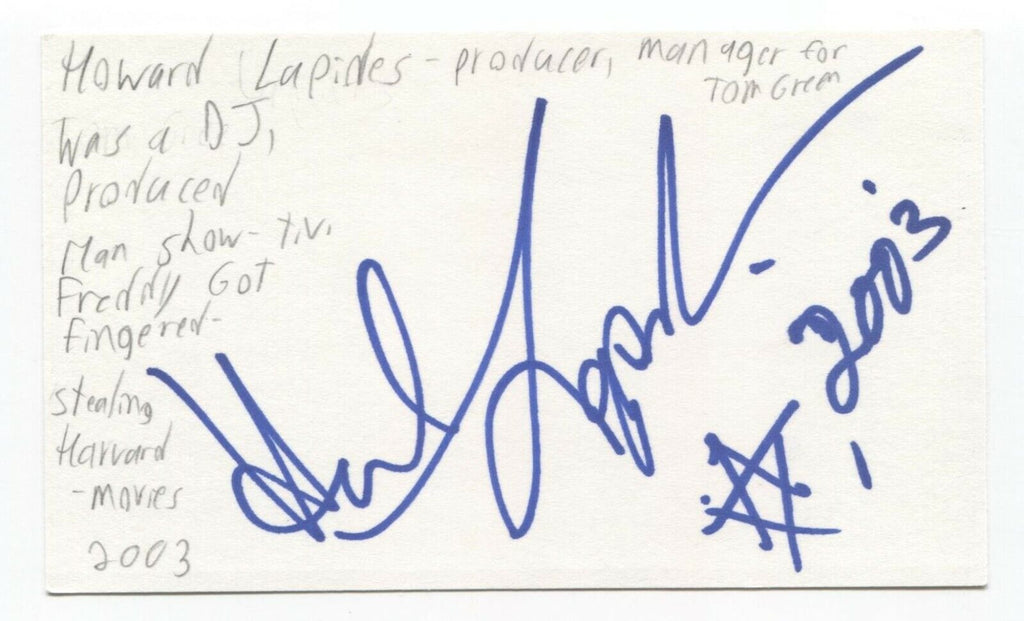 Howard Lapides - producer, manager for
Tom Green
Was a DJ,
Produced
Man show - t.v.
Freddy Got
Fingered -
stealing
Harvard
- movies
2003
2003